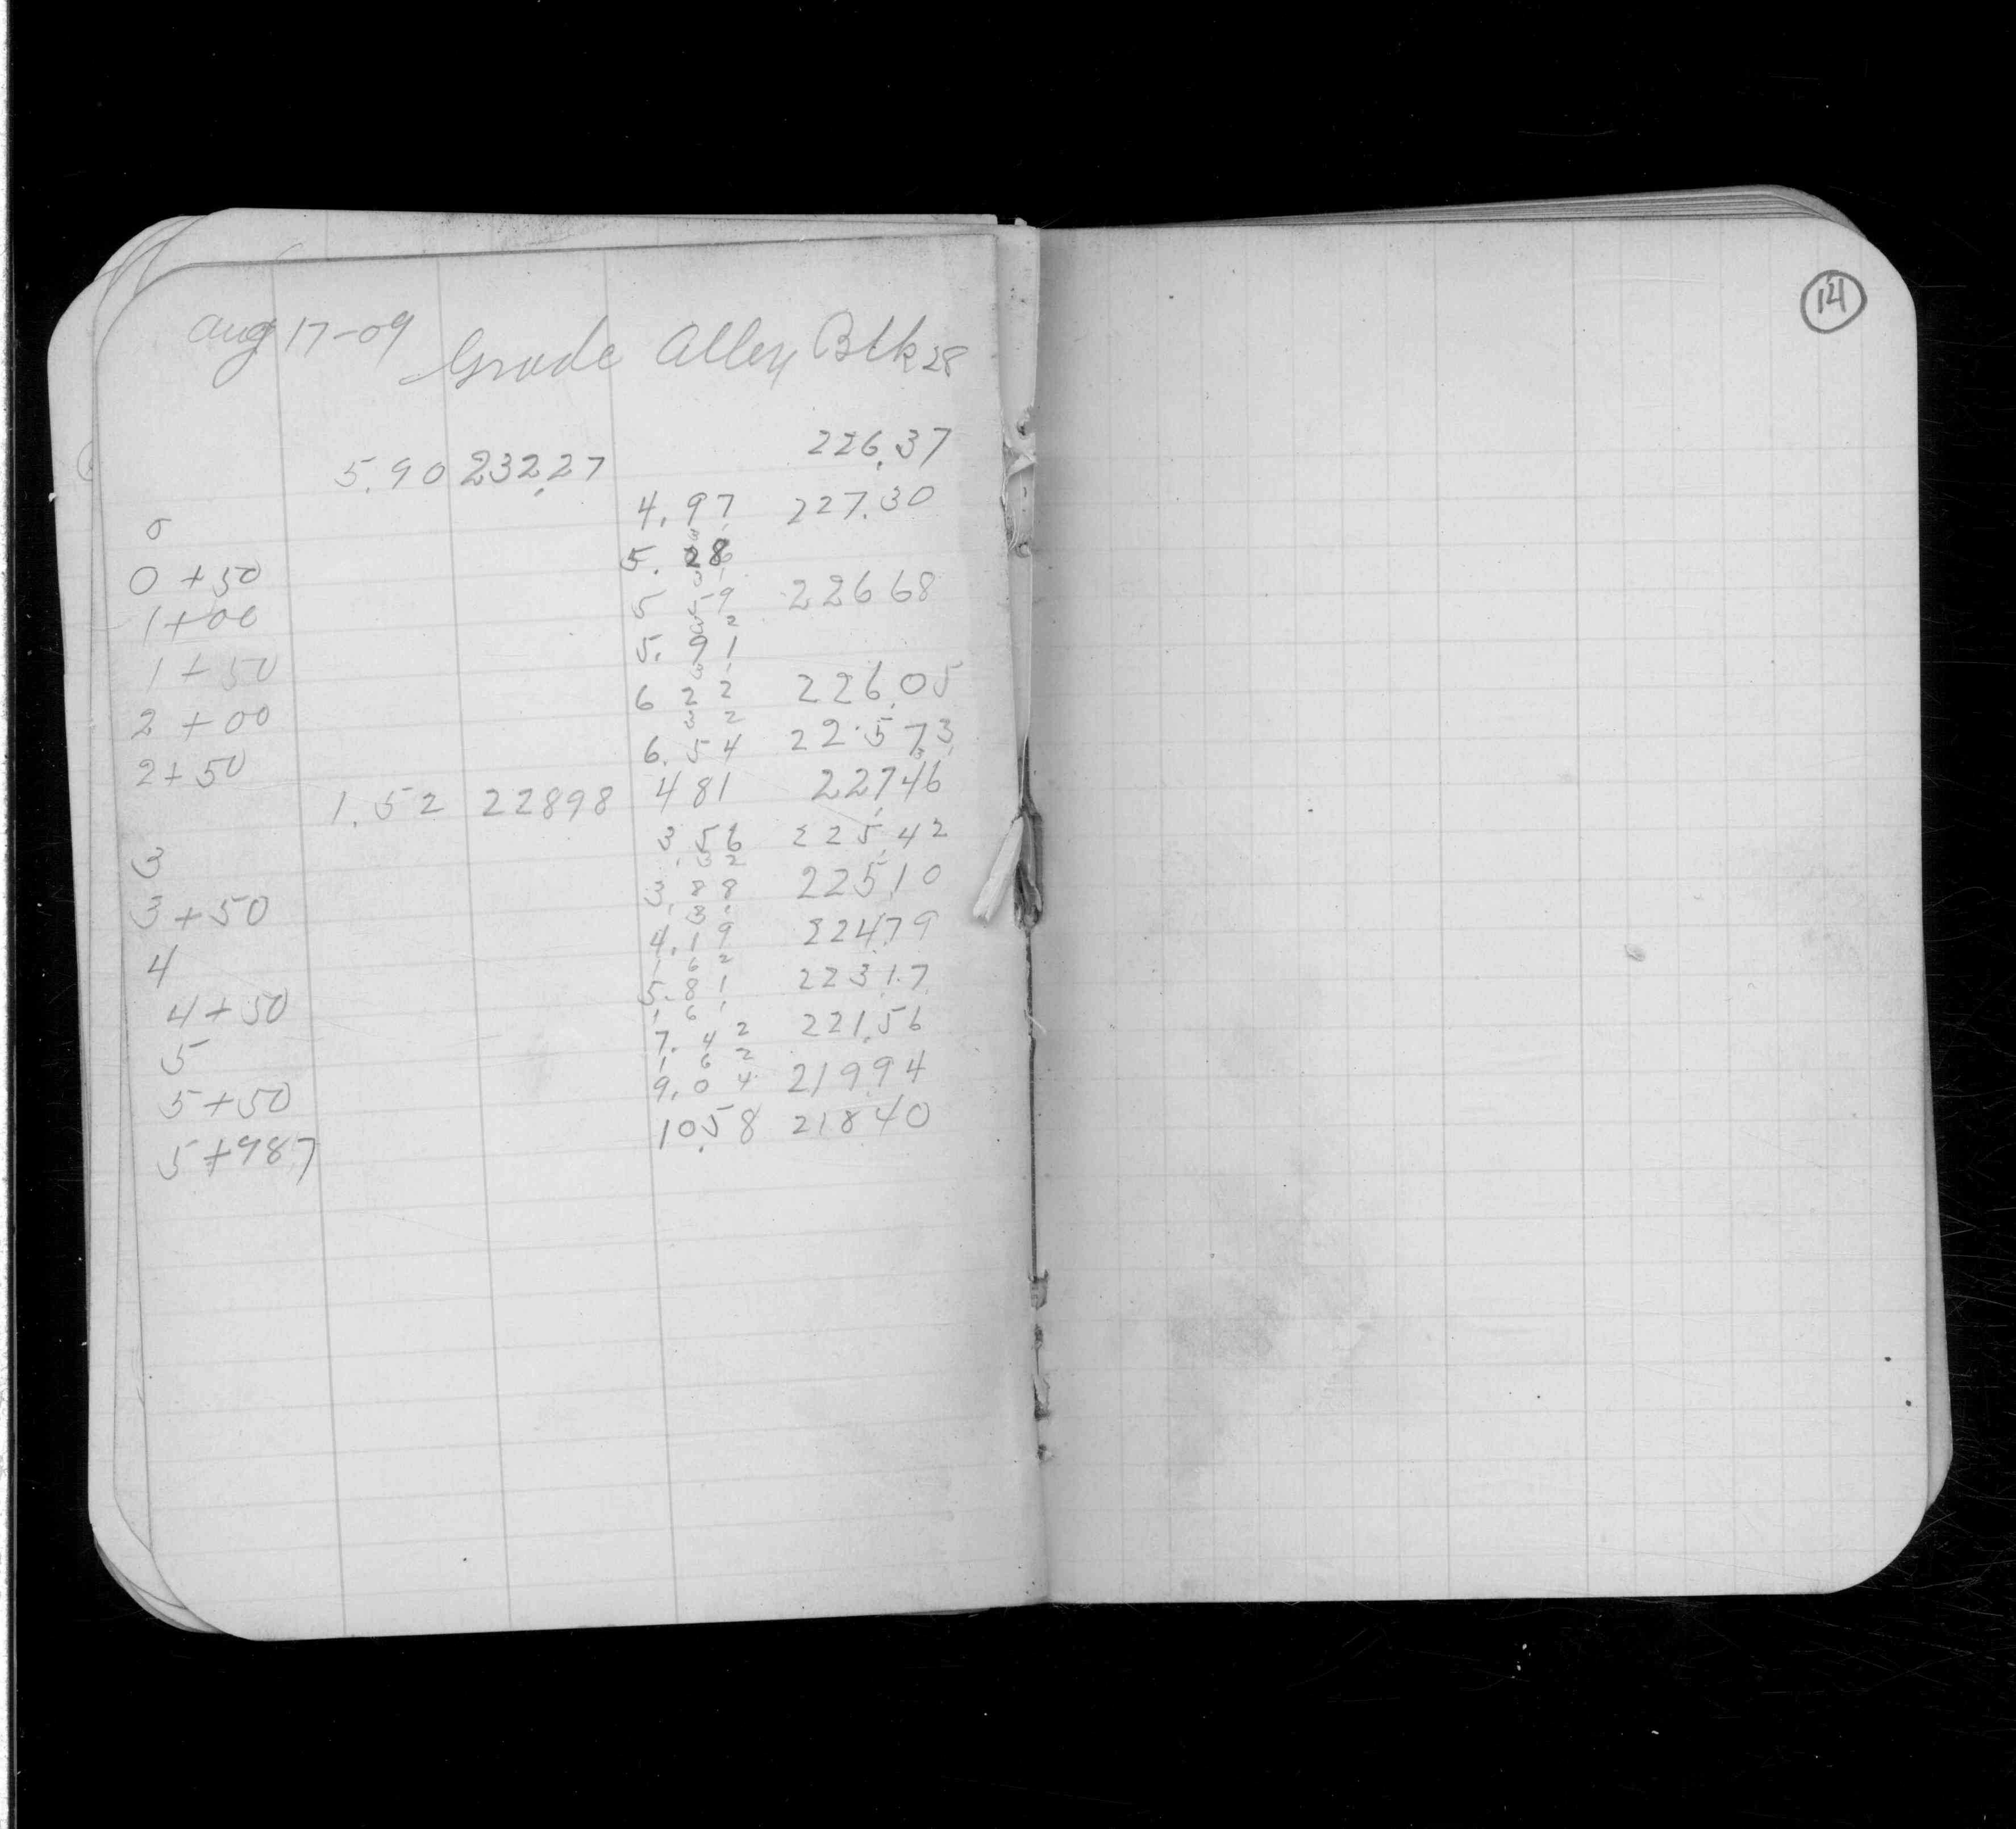 Aug 17-09
Grade Alley Blk 28
226.37
5.90 232.27
0 4.97 227.30
3 1
0+50 5.28
3 1
1+00 5 59 22668
3 2
1+50 5.91
3 1
2+00 6 22 226.05
3 2
2+50 6.54 225 73
3 1
1.52 22898 481 227.46
3 3.56 225.42
3 2
3+50 3.88 225.10
3 1
4 4.19 224.79
1 6 2
4+50 5.81 223.17
1 6 1
5 7.42 221.56
1 6 2
5+50 9.04 219.94
5+98.7 10.58 21840
14